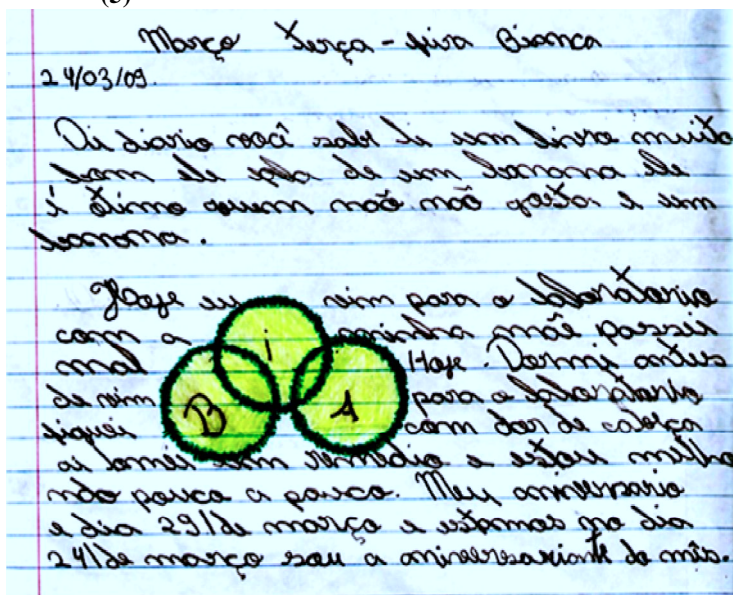 (3)
Março Terça-feira Bianca
24/03/09.
Oi diario você sabe li um livro muito
bom ele fala de um banana ele
é ótimo quem não não gosta e um
banana.
Hoje eu vim para o laboratorio
com a minha mãe passei
mal Hoje. Dormi antes
de vim para o laboratorio
fiquei com dor de cabeça
ai tomei um remedio e estou melho
ndo pouco a pouco. Meu aniversario
e dia 29/de março e estamos no dia
24/de março sou a aniversariante do mês.
B i A